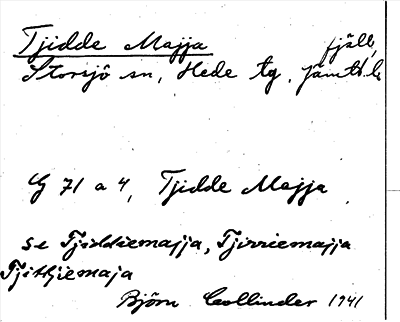 Tjidde Majja fjäll,
Storsjö sn, Hede tg, Jämtl. l.
G 71 a 4, Tjidde Majja
se Tjiddiemajja, Tjirriemajja
Tjithjiemaja
Björn Collinder 1941